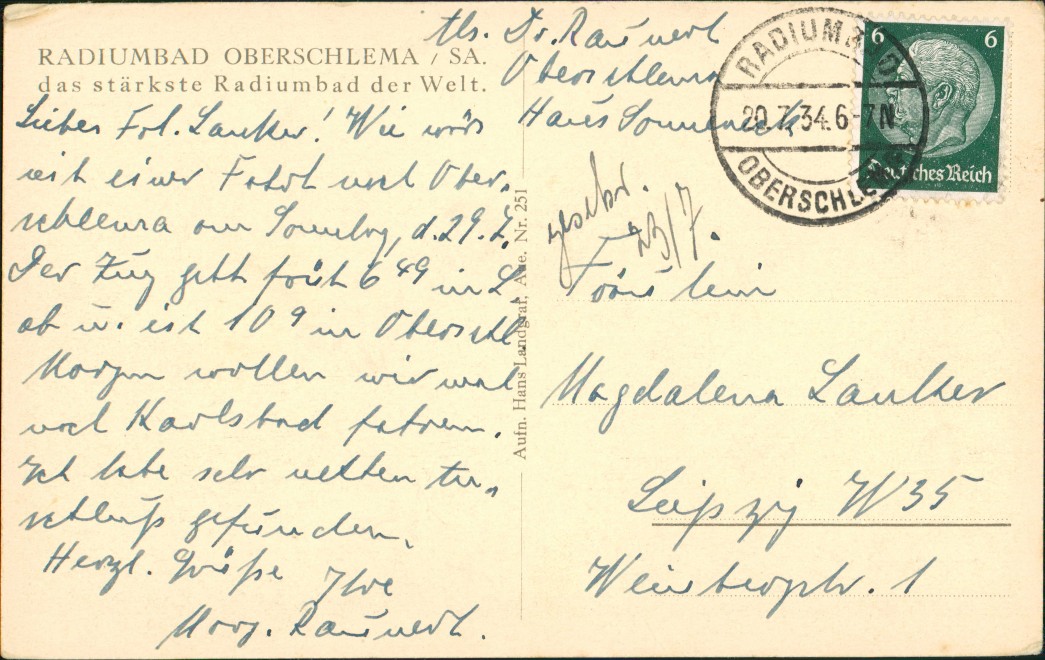 RADIUMBAD OBERSCHLEMA / SA.
das stärkste Radiumbad der Welt.
Liebes Frl. Lauker! Wie wärs
mit einer Fahrt nach Ober-
schlema am Sonntag, d. 29. 7.
Der Zug geht früh 6 49 in L
ab u. ist 10 9 in Oberschl.
Morgen wollen wir mal
nach Karlsbad fahren.
Ich habe sehr netten An-
schluß gefunden.
Herzl. Grüße Ihre
Marg. Raunert.
Abs. Dr. Raunert
Oberschlema
Haus Sonneneck
RADIUMBAD
20.7.34.6-7N
OBERSCHLEMA
6 6
Deutsches Reich
23/7.
Aufn. Hans Landgraf, Aue. Nr. 251
Fräulein
Magdalena Lauker
Leipzig W 35
Weinbergstr. 1